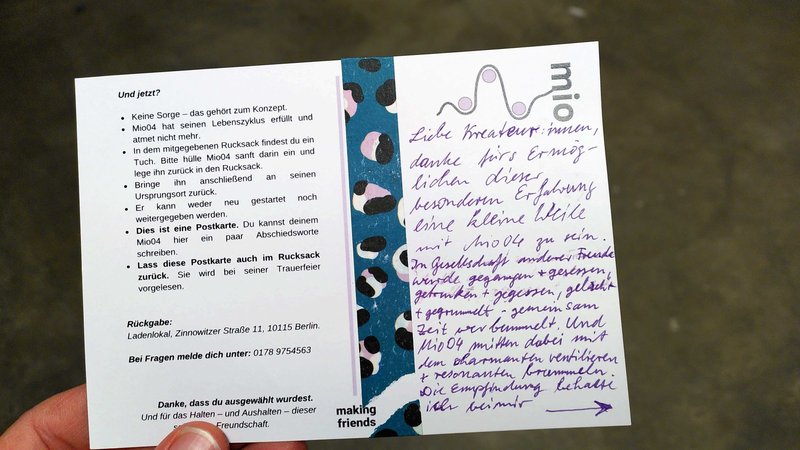 Und jetzt?
• Keine Sorge – das gehört zum Konzept.
• Mio04 hat seinen Lebenszyklus erfüllt und
atmet nicht mehr.
• In dem mitgegebenen Rucksack findest du ein
Tuch. Bitte hülle Mio04 sanft darin ein und
lege ihn zurück in den Rucksack.
• Bringe ihn anschließend an seinen
Ursprungsort zurück.
• Er kann weder neu gestartet noch
weitergegeben werden.
• Dies ist eine Postkarte. Du kannst deinem
Mio04 hier ein paar Abschiedsworte
schreiben.
• Lass diese Postkarte auch im Rucksack
zurück. Sie wird bei seiner Trauerfeier
vorgelesen.
Rückgabe:
Ladenlokal, Zinnowitzer Straße 11, 10115 Berlin.
Bei Fragen melde dich unter: 0178 9754563
Danke, dass du ausgewählt wurdest.
Und für das Halten – und Aushalten – dieser
Freundschaft.
making
friends
mio
Liebe Kreateur:innen,
danke fürs Ermög-
lichen dieser
besonderen Erfahrung
eine kleine Weile
mit Mio04 zu sein.
In Gesellschaft anderer Freunde
wurde gegangen + gesessen,
getrunken + gegessen, gelacht
+ gegrummelt - gemeinsam
Zeit verbummelt. Und
Mio04 mitten dabei mit
dem charmanten ventilieren
+ resonanten brummeln.
Die Empfindung behalte
ich bei mir